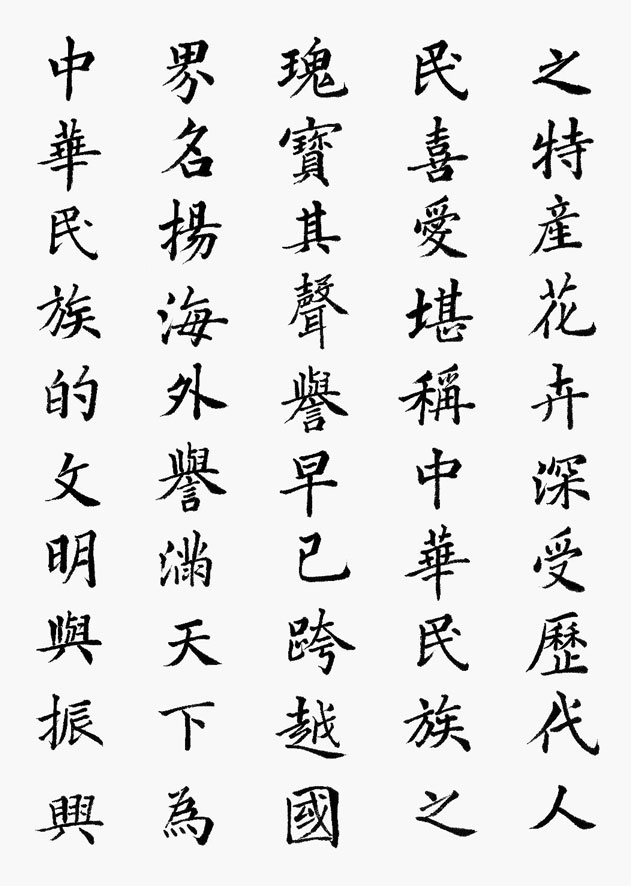 之特產花卉深受歷代人
民喜愛堪稱中華民族之
瑰寶其聲譽早已跨越國
界名揚海外譽滿天下為
中華民族的文明與振興